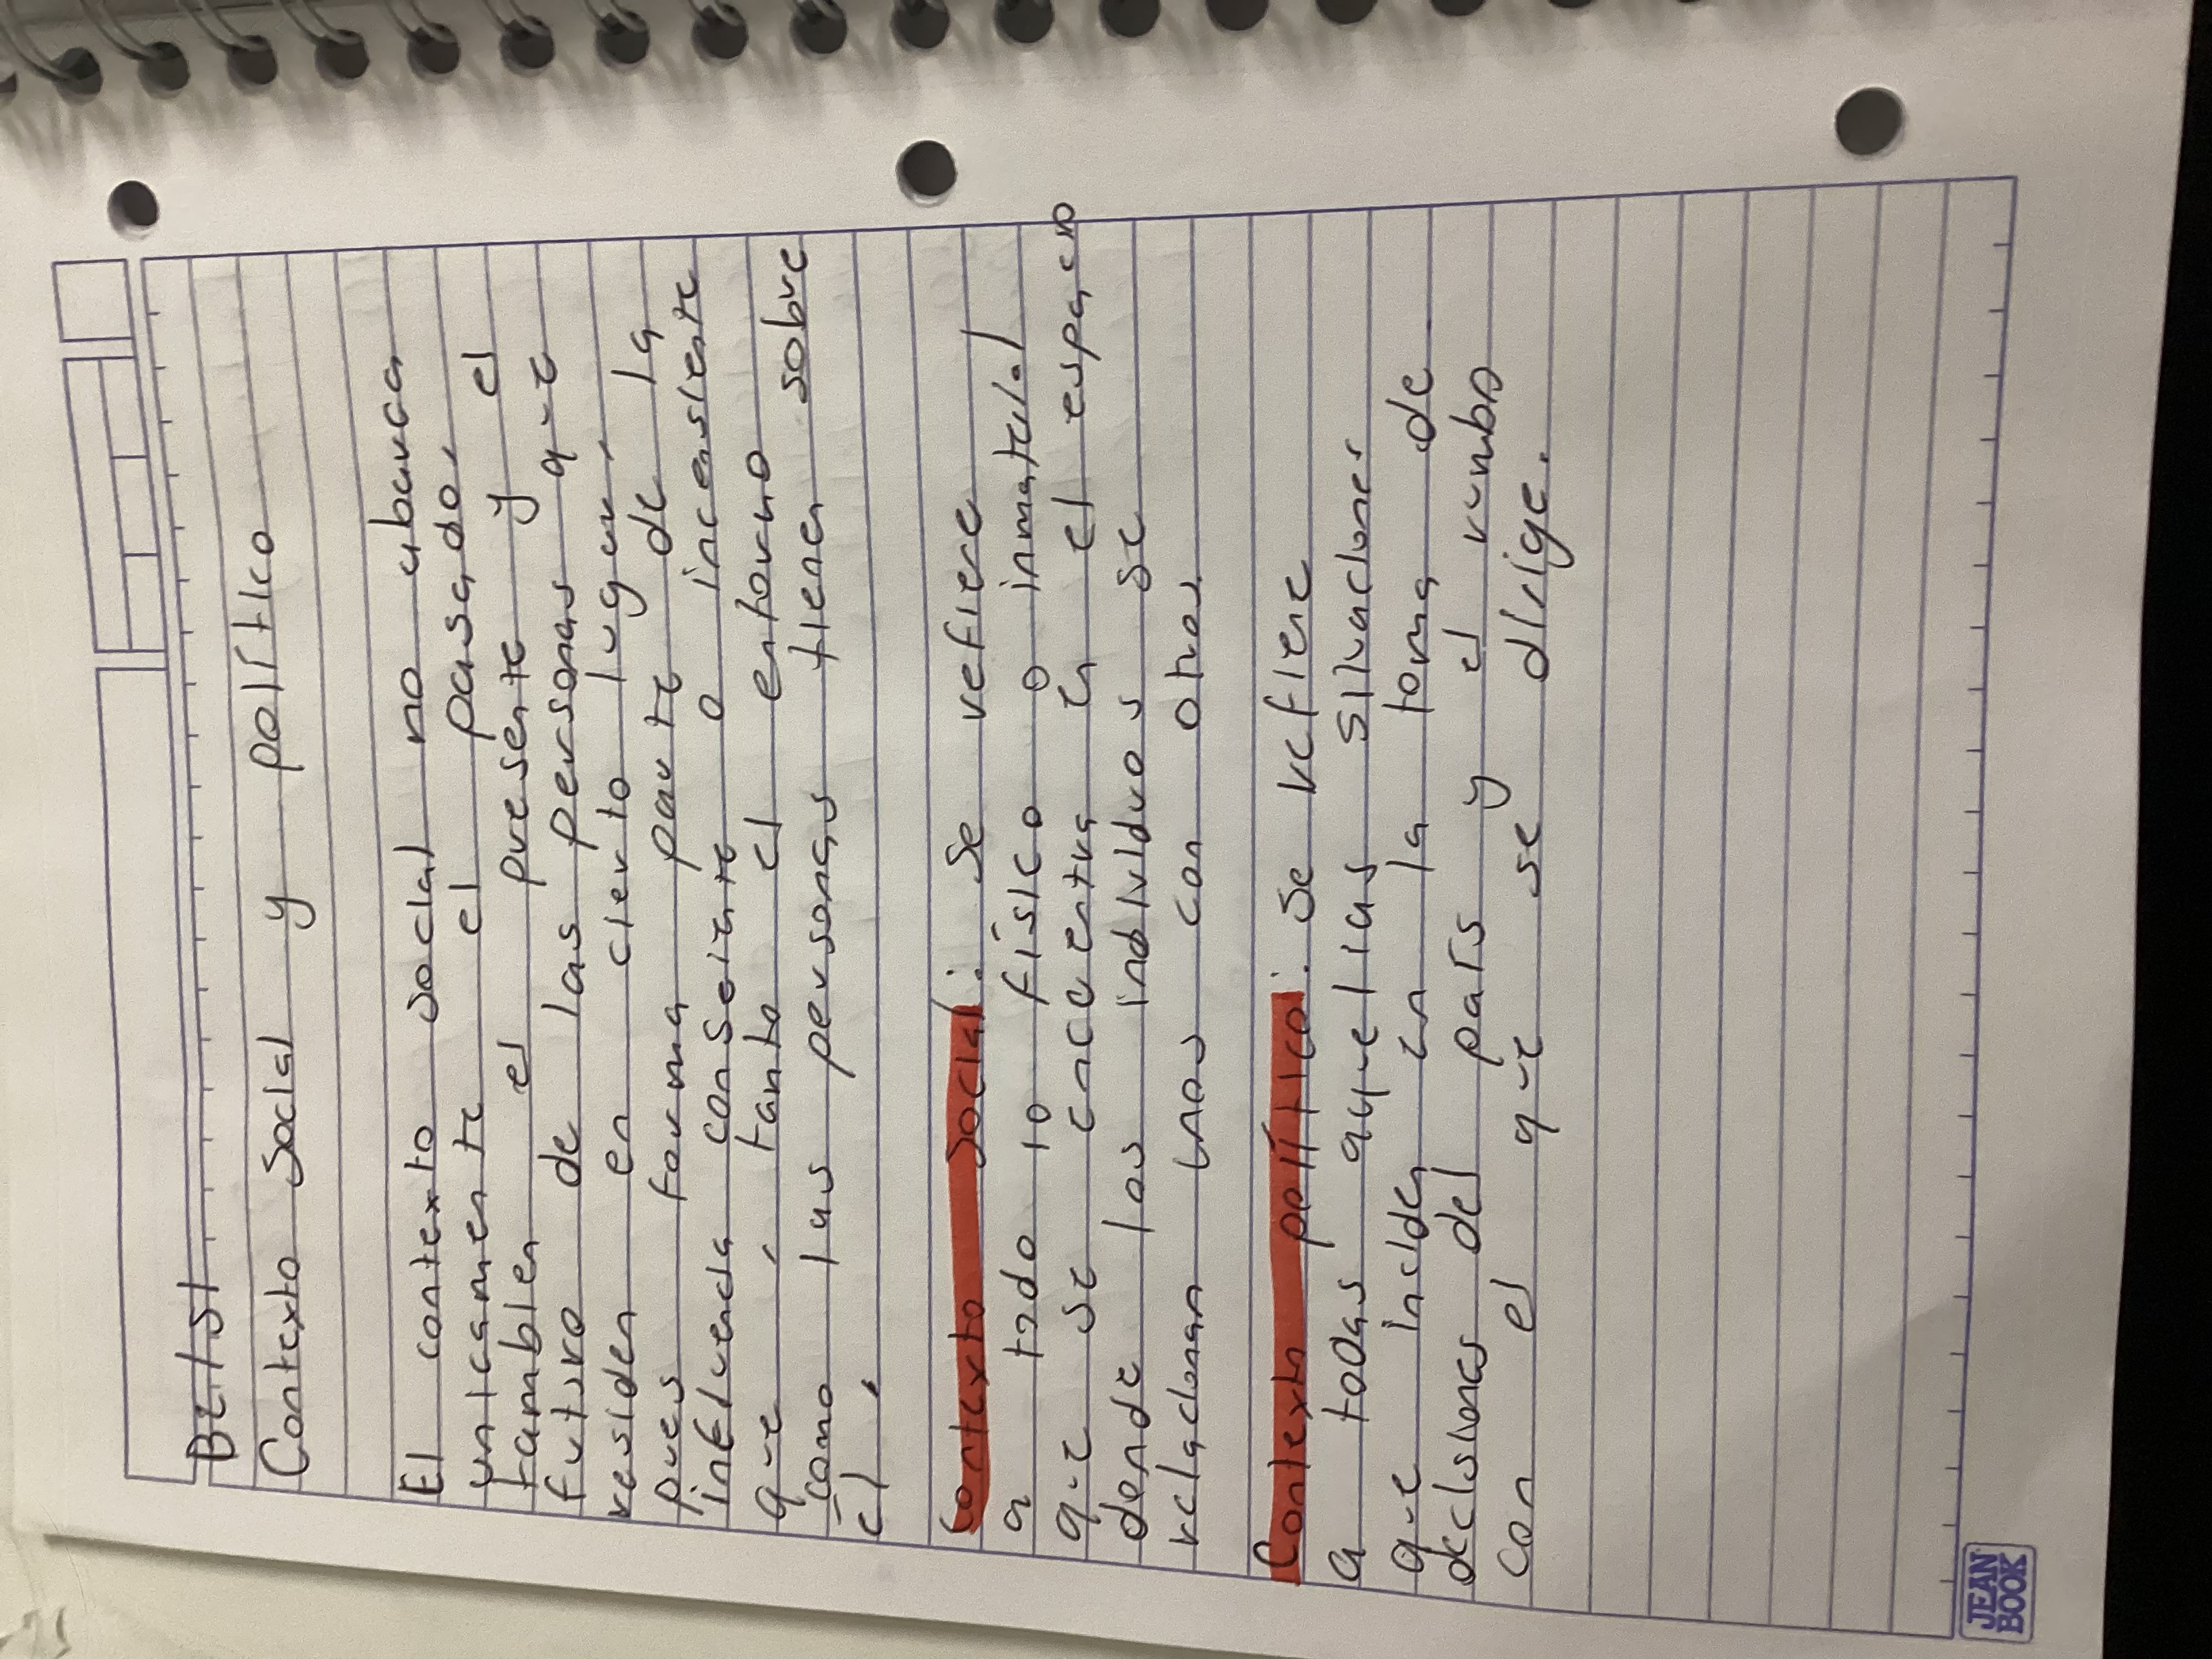 Betsi
Contexto Social y político
El contexto social no abarca
unicamente el pasado,
tambien el presente y el
futuro de las personas que
residen en cierto lugar,
pues forma parte de la
influencia consciente o inconsiente
que, tanto el entorno
como las personas tienen sobre
el.
Contexto Social: Se refiere
a todo lo físico o inmaterial
que se encuentra en el espacio
donde los individuos se
relacionan unos con otros
Contexto político: Se refiere
a todas aquellas situaciones
que inciden en la toma de
decisiones del país y el rumbo
con el que se dirige.
JEAN
BOOK